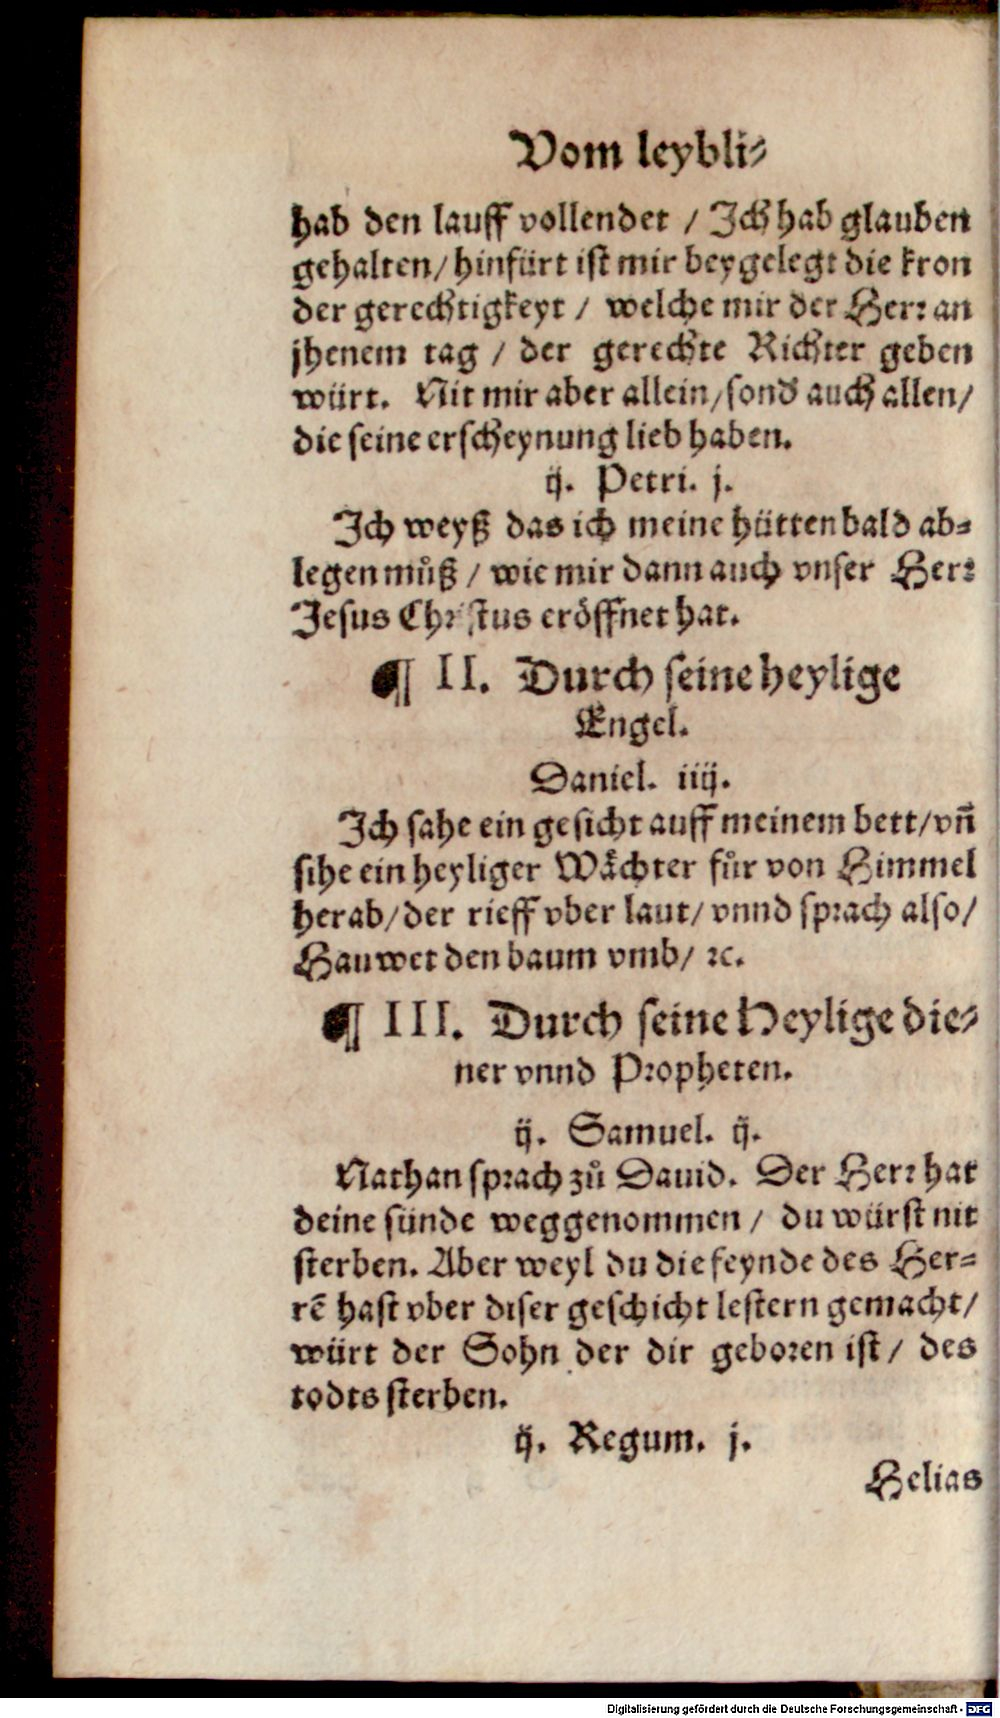 Vom leybli⸗
hab den lauff vollendet / Ich hab glauben
gehalten / hinfürt ist mir beygelegt die kron
der gerechtigkeyt / welche mir der Herr an
jhenem tag / der gerechte Richter geben
würt. Nit mir aber allein / sond' auch allen /
die seine erscheynung lieb haben.
ij. Petri. j.
Ich weyß das ich meine hütten bald ab⸗
legen můß / wie mir dann auch vnser Herr
Jesus Christus eröffnet hat.
¶ II. Durch seine heylige
Engel.
Daniel. iiij.
Ich sahe ein gesicht auff meinem bett / vn̄
sihe ein heyliger Wächter fůr von Himmel
herab / der rieff vber laut / vnnd sprach also /
Hauwet den baum vmb / ꝛc.
¶ III. Durch seine Heylige die⸗
ner vnnd Propheten.
ij. Samuel. ij.
Nathan sprach zů Dauid. Der Herr hat
deine sünde weggenommen / du würst nit
sterben. Aber weyl du die feynde des Her⸗
rē hast vber diser geschicht lestern gemacht /
würt der Sohn der dir geboren ist / des
todts sterben.
ij. Regum. j.
Helias
Digitalisierung gefördert durch die Deutsche Forschungsgemeinschaft - DFG